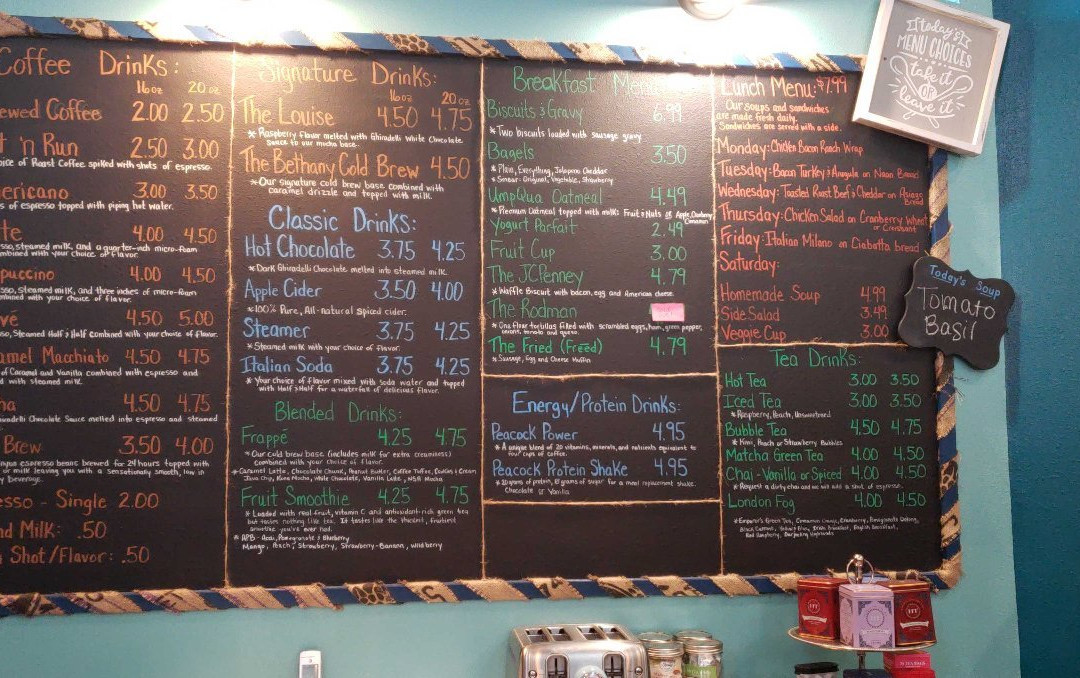 Coffee Drinks:
16oz 20oz
ewed Coffee 2.00 2.50
t 'n Run 2.50 3.00
oice of Roast Coffee spiked with shots of espresso.
ericano 3.00 3.50
s of espresso topped with piping hot water.
te 4.00 4.50
sso, steamed milk, and a quarter-inch micro-foam
mbined with your choice of flavor.
puccino 4.00 4.50
esso, steamed milk, and three inches of micro-foam
mbined with your choice of flavor.
vé 4.50 5.00
sso, Steamed Half & Half combined with your choice of flavor.
amel Macchiato 4.50 4.75
of Caramel and Vanilla combined with espresso and
d with steamed milk.
ha 4.50 4.75
irardelli Chocolate Sauce melted into espresso and steamed
Brew 3.50 4.00
espresso beans brewed for 24 hours topped with
or milk leaving you with a sensationously smooth, low in
y beverage.
esso - Single 2.00
nd Milk: .50
Shot/Flavor: .50
Signature Drinks:
16oz 20oz
The Louise 4.50 4.75
* Raspberry flavor melted with Ghiradelli White Chocolate
Sauce to our mocha base.
The Bethany Cold Brew 4.50
*Our signature cold brew base combined with
caramel drizzle and topped with milk.
Classic Drinks:
Hot Chocolate 3.75 4.25
*Dark Ghiradelli Chocolate melted into steamed milk.
Apple Cider 3.50 4.00
*100% Pure, All-natural Spiced cider.
Steamer 3.75 4.25
*Steamed milk with your choice of flavor.
Italian Soda 3.75 4.25
* Your choice of flavor mixed with soda water and topped
with Half & Half for a waterfall of delicious flavor.
Blended Drinks:
Frappé 4.25 4.75
*Our cold brew base (includes milk for extra creaminess)
combined with your choice of flavor.
*Caramel Latte, Chocolate Chunk, Peanut Butter, Coffee Toffee, Cookies & Cream
Java Chip, Kona Mocha, White Chocolate, Vanilla Latte, NSA Mocha
Fruit Smoothie 4.25 4.75
* Loaded with real fruit, vitamin C and antioxidant-rich green tea
but tastes nothing like tea. It tastes like the thickest, fruitiest
smoothie you've ever had.
* APB - Acai, Pomegranate & Blueberry
Mango, Peach, Strawberry, Strawberry-Banana, Wildberry
Breakfast Menu
Biscuits & Gravy 6.99
* Two biscuits loaded with sausage gravy
Bagels 3.50
* Plain, Everything, Jalapeno Cheddar
* Smear: Original, Vegetable, Strawberry
UmpQua Oatmeal 4.49
*Premium Oatmeal topped with milk: Fruit & Nuts or Apple, Cranberry
Cinnamon
Yogurt Parfait 2.49
Fruit Cup 3.00
The JCPenney 4.79
*Waffle Biscuit with bacon, egg and American cheese
The Rodman
*One flour tortillas filled with scrambled eggs, ham, green pepper,
onions, tomato and queso.
The Fried (Freed) 4.79
* Sausage, Egg and Cheese Muffin
Energy/Protein Drinks:
Peacock Power 4.95
* A unique blend of 20 vitamins, minerals, and nutrients equivalent to
four cups of coffee.
Peacock Protein Shake 4.95
* 20 grams of protein, 10 grams of sugar for a meal replacement shake.
Chocolate or Vanilla
Lunch Menu: $7.99
Our soups and sandwiches
are made fresh daily.
Sandwiches are served with a side.
Monday: Chicken Bacon Ranch Wrap
Tuesday: Bacon Turkey & Arugula on Naan Bread
Wednesday: Toasted Roast Beef & Cheddar on Asiago
Bread
Thursday: Chicken Salad on Cranberry Wheat
or Croissant
Friday: Italian Milano on Ciabatta bread
Saturday:
Homemade Soup 4.99
Side Salad 3.49
Veggie Cup 3.00
Tea Drinks:
Hot Tea 3.00 3.50
Iced Tea 3.00 3.50
*Raspberry, Peach, Unsweetened
Bubble Tea 4.50 4.75
* Kiwi, Peach or Strawberry Bubbles
Matcha Green Tea 4.00 4.50
Chai - Vanilla or Spiced 4.00 4.50
*Request a dirty chai and we will add a shot of espresso.
London Fog 4.00 4.50
Green Tea, Cinnamon Orange, Cranberry, Pomegranate Oolong,
Black Currant, Yellow & Blue, Irish Breakfast, English Breakfast,
Red Raspberry, Darjeeling Highlands
today's
MENU CHOICES
take it
OR
leave it
Today's Soup
Tomato
Basil